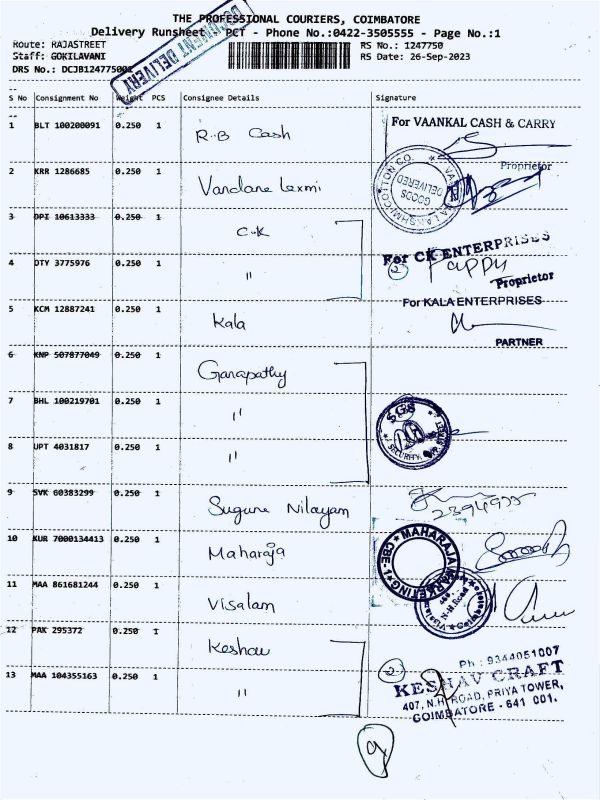 THE PROFESSIONAL COURIERS, COIMBATORE
Delivery Runsheet PCT - Phone No.:0422-3505555 - Page No.:1
Route: RAJASTREET RS No.: 1247750
Staff: GOKILAVANI RS Date: 26-Sep-2023
DRS No.: DCJB124775001
DOCUMENT DELIVERY
S No Consignment No Weight PCS Consignee Details Signature
1 BLT 100200091 0.250 1 R.B Cash For VAANKAL CASH & CARRY
Proprietor
2 KRR 1286685 0.250 1 Vandana Laxmi GOODS DELIVERED
3 DPI 10613333 0.250 1 C.K For CK ENTERPRISES
4 DTY 3775976 0.250 1 " 2 Pappu
Proprietor
5 KCM 12887241 0.250 1 Kala For KALA ENTERPRISES
PARTNER
6 KNP 507877049 0.250 1 Ganapathy
7 BHL 100219701 0.250 1 " SGS SECURITY
8 UPT 4031817 0.250 1 "
9 SVK 60383299 0.250 1 Suguna Nilayam
10 KUR 7000134413 0.250 1 Maharaja MAHARAJA MARKETING CBE-1
11 MAA 861681244 0.250 1 Visalam N.H.Road
12 PAK 295372 1 Keshav
13 MAA 104355163 0.250 1 " 2 Ph : 9344051007
KESHAV CRAFT
407, N.H. ROAD, PRIYA TOWER,
COIMBATORE - 641 001.
9